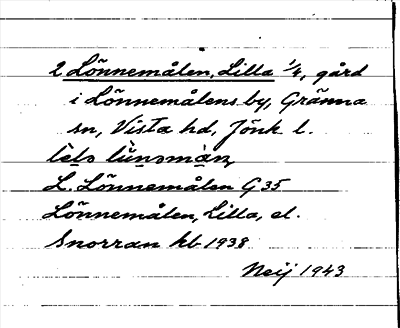 2 Lönnemålen, Lilla 1/4, gård
i Lönnemålens by, Gränna
sn, Vista hd, Jönk l.
L. Lönnemålen G 35
Lönnemålen, Lilla, el.
Snorran kb 1938
Neij 1943